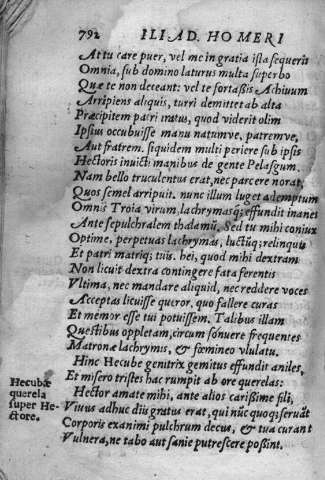 792 ILIAD. HOMERI
At tu care puer, vel me in gratia ista sequeris
Omnia, sub domino laturus multa superbo
Quæ te non deceant: vel te fortaßis Achiuum
Arripiens aliquis, turri demittet ab alta
Præcipitem patri natus, quod viderit olim
Ipsius occubuisse manu natumve, patremve,
Aut fratrem. siquidem multi periere sub ipsis
Hectoris inuicti manibus de gente Pelasgum.
Nam bello truculentus erat, nec parcere norat,
Quos semel arripuit. nunc illum luget ademptum
Omnis Troia virum, lachrymasq; effundit inanes
Ante sepulchralem thalamũ. Sed tu mihi coniux
Optime, perpetuas lachrymas, luctũq; relinquis
Et patri matriq; tuis. hei, quod mihi dextram
Non licuit dextra contingere fata ferentis
Vltima, nec mandare aliquid, nec reddere voces
Acceptas licuisse queror, quo fallere curas
Et memor esse tui potuissem. Talibus illam
Questibus oppletam, circum sonuere frequentes
Matronæ lachrymis, & fœmineo vlulatu.
Hinc Hecube genitrix gemitus effundit aniles,
Et misero tristes hac rumpit ab ore querelas:
Hecubæ querela super Hectore.
Hector amate mihi, ante alios carißime fili,
Viuus adhuc diis gratus erat, qui nũc quoq; seruãt
Corporis exanimi pulchrum decus, & tua curant
Vulnera, ne tabo aut sanie putrescere poßint.